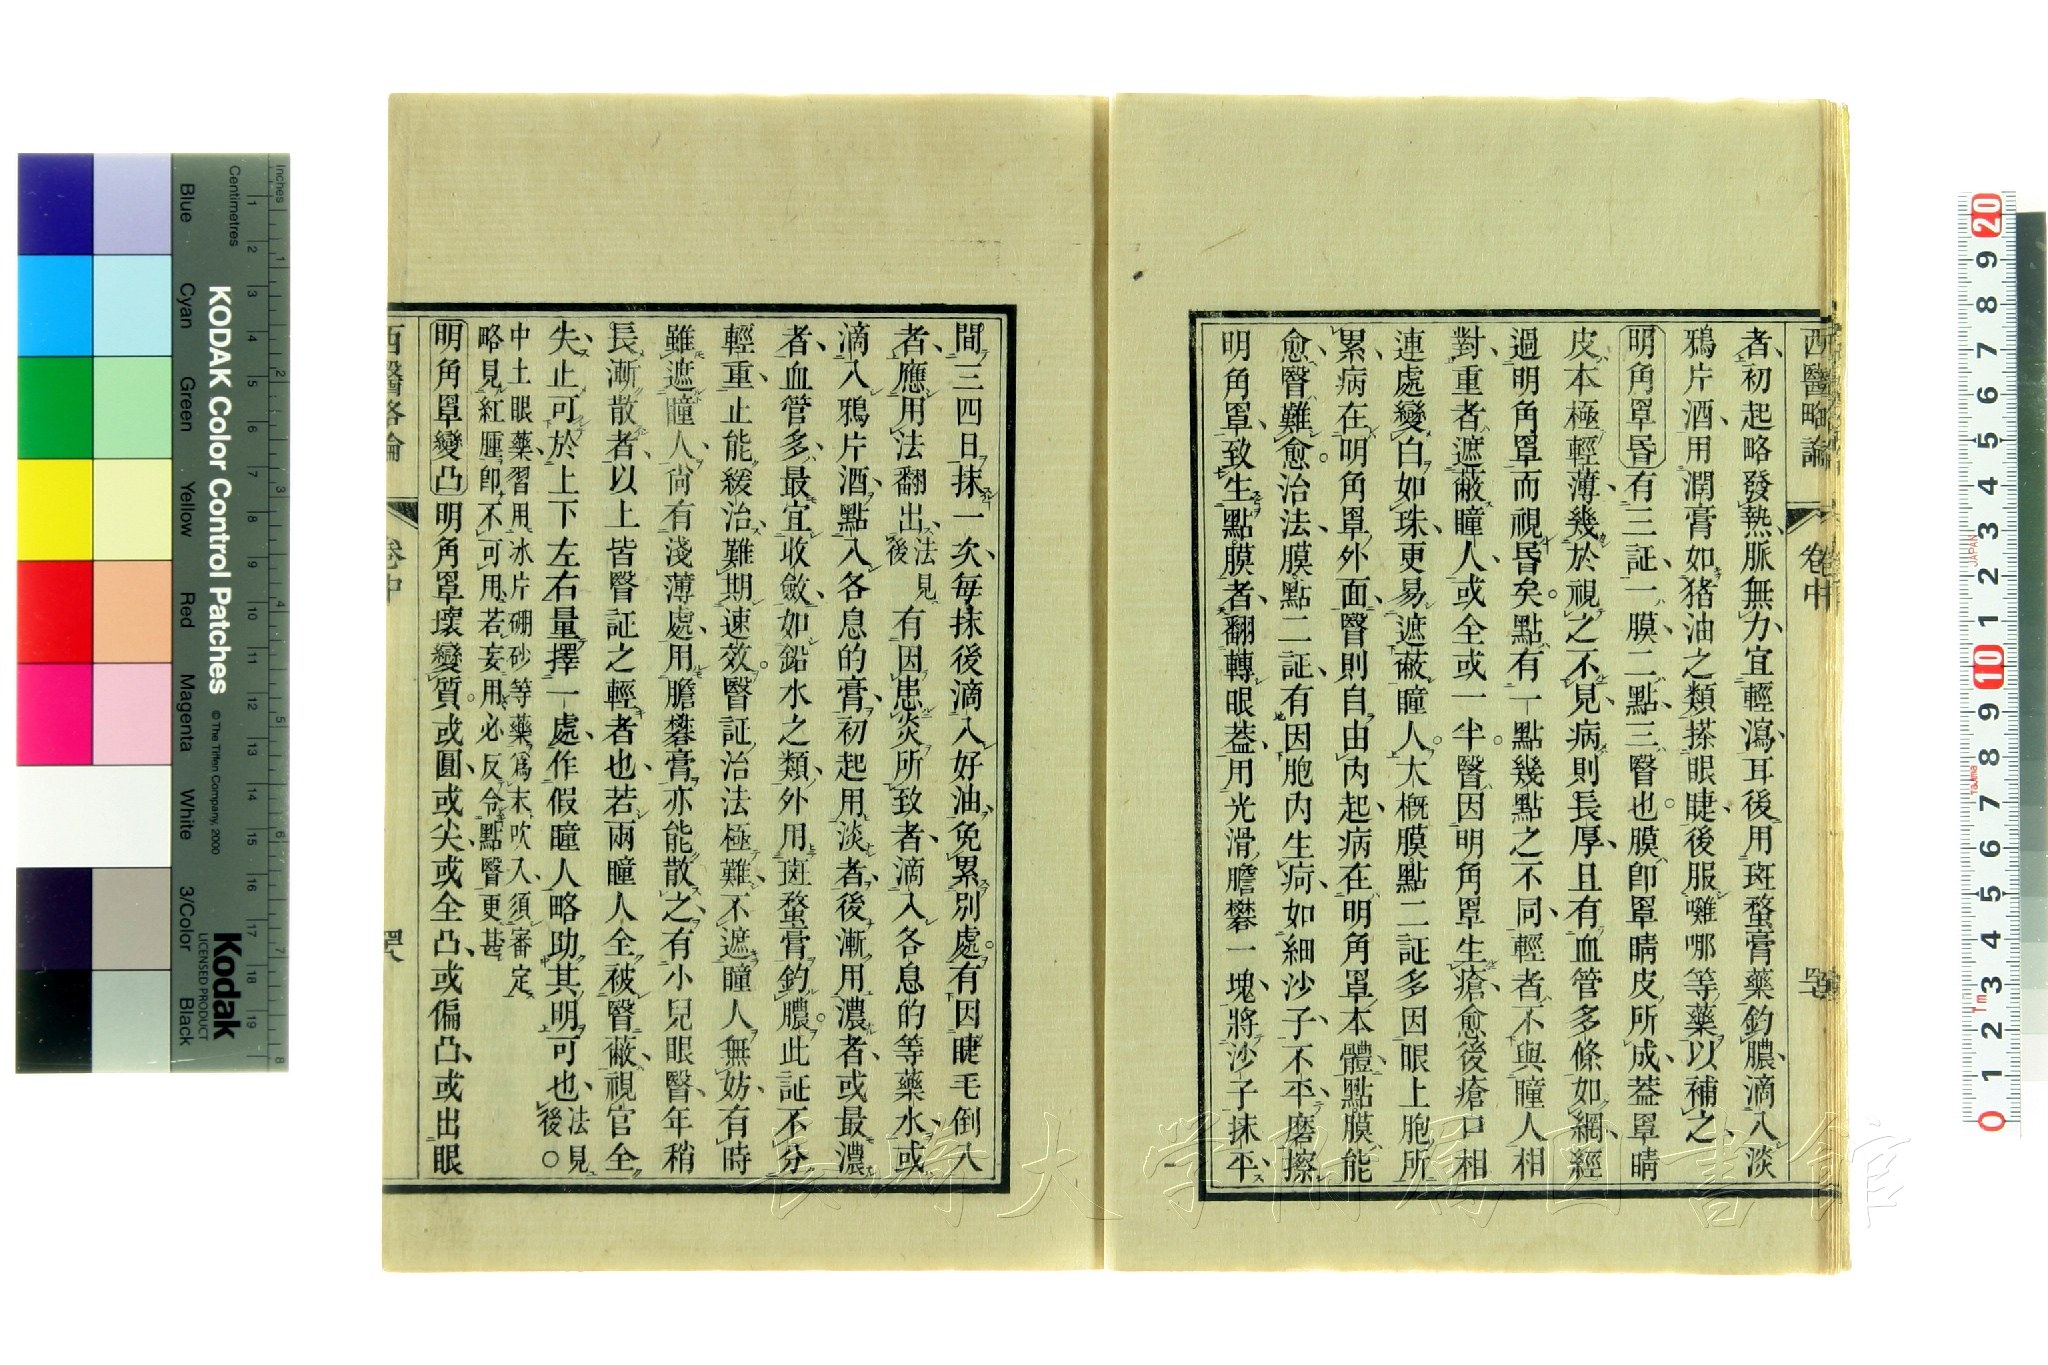 西醫略論 卷中 四七
者、初起略發熱、脈無力、宜輕瀉、耳後用斑蝥膏藥釣膿、滴入淡
鴉片酒、用潤膏如猪油之類搽眼睫、後服囉哪等藥以補之、
明角罩昏有三証、一膜二點三瞖也。膜卽罩睛皮所成、葢罩睛
皮本極輕薄、幾於視之不見、病則長厚、且有血管多條如網、經
過明角罩而視昬矣。點有一點幾點之不同、輕者不與瞳人相
對、重者遮蔽瞳人、或全或一半。瞖因明角罩生瘡、愈後瘡口相
連處變白如珠、更易遮蔽瞳人。大概膜點二証多因眼上胞所
累、病在明角罩外面、瞖則自由內起、病在明角罩本體、點膜能
愈、瞖難愈。治法、膜點二証、有因胞內生疴、如細沙子、不平、磨擦
明角罩、致生點膜者、翻轉眼葢、用光滑膽礬一塊、將沙子抹平、
間三四日抹一次、每抹後滴入好油、免累別處。有因睫毛倒入
者、應用法翻出法見後有因患炎所致者、滴入各息的等藥水、或
滴入鴉片酒、點入各息的膏、初起用淡者、後漸用濃者、或最濃
者、血管多、最宜收斂、如鉛水之類、外用斑蝥膏釣膿。此証不分
輕重、止能緩治、難期速效。瞖証治法極難、不遮瞳人無妨、有時
雖遮瞳人、尙有淺薄處、用膽礬膏亦能散之、有小兒眼瞖、年稍
長漸散者、以上皆瞖証之輕者也、若兩瞳人全被瞖蔽、視官全
失、止可於上下左右量擇一處、作假瞳人、略助其明可也、法見後。○
中土眼藥習用冰片硼砂等藥爲末吹入、須審定
略見紅腫卽不可用、若妄用必反令點瞖更甚
明角罩變凸明角罩壞變質。或圓、或尖、或全凸、或偏凸、或出眼
西醫略論 卷中 四八
KODAK Color Control Patches
© The Tiffen Company, 2000
Kodak
LICENSED PRODUCT
Inches
Centimetres
Blue Cyan Green Yellow Red Magenta White 3/Color Black
1 2 3 4 5 6 7 8 9 10 11 12 13 14 15 16 17 18 19
1 2 3 4 5 6 7 8
20 9 8 7 6 5 4 3 2 1 10 9 8 7 6 5 4 3 2 1 0
JAPAN
1m
長崎大学附属図書館